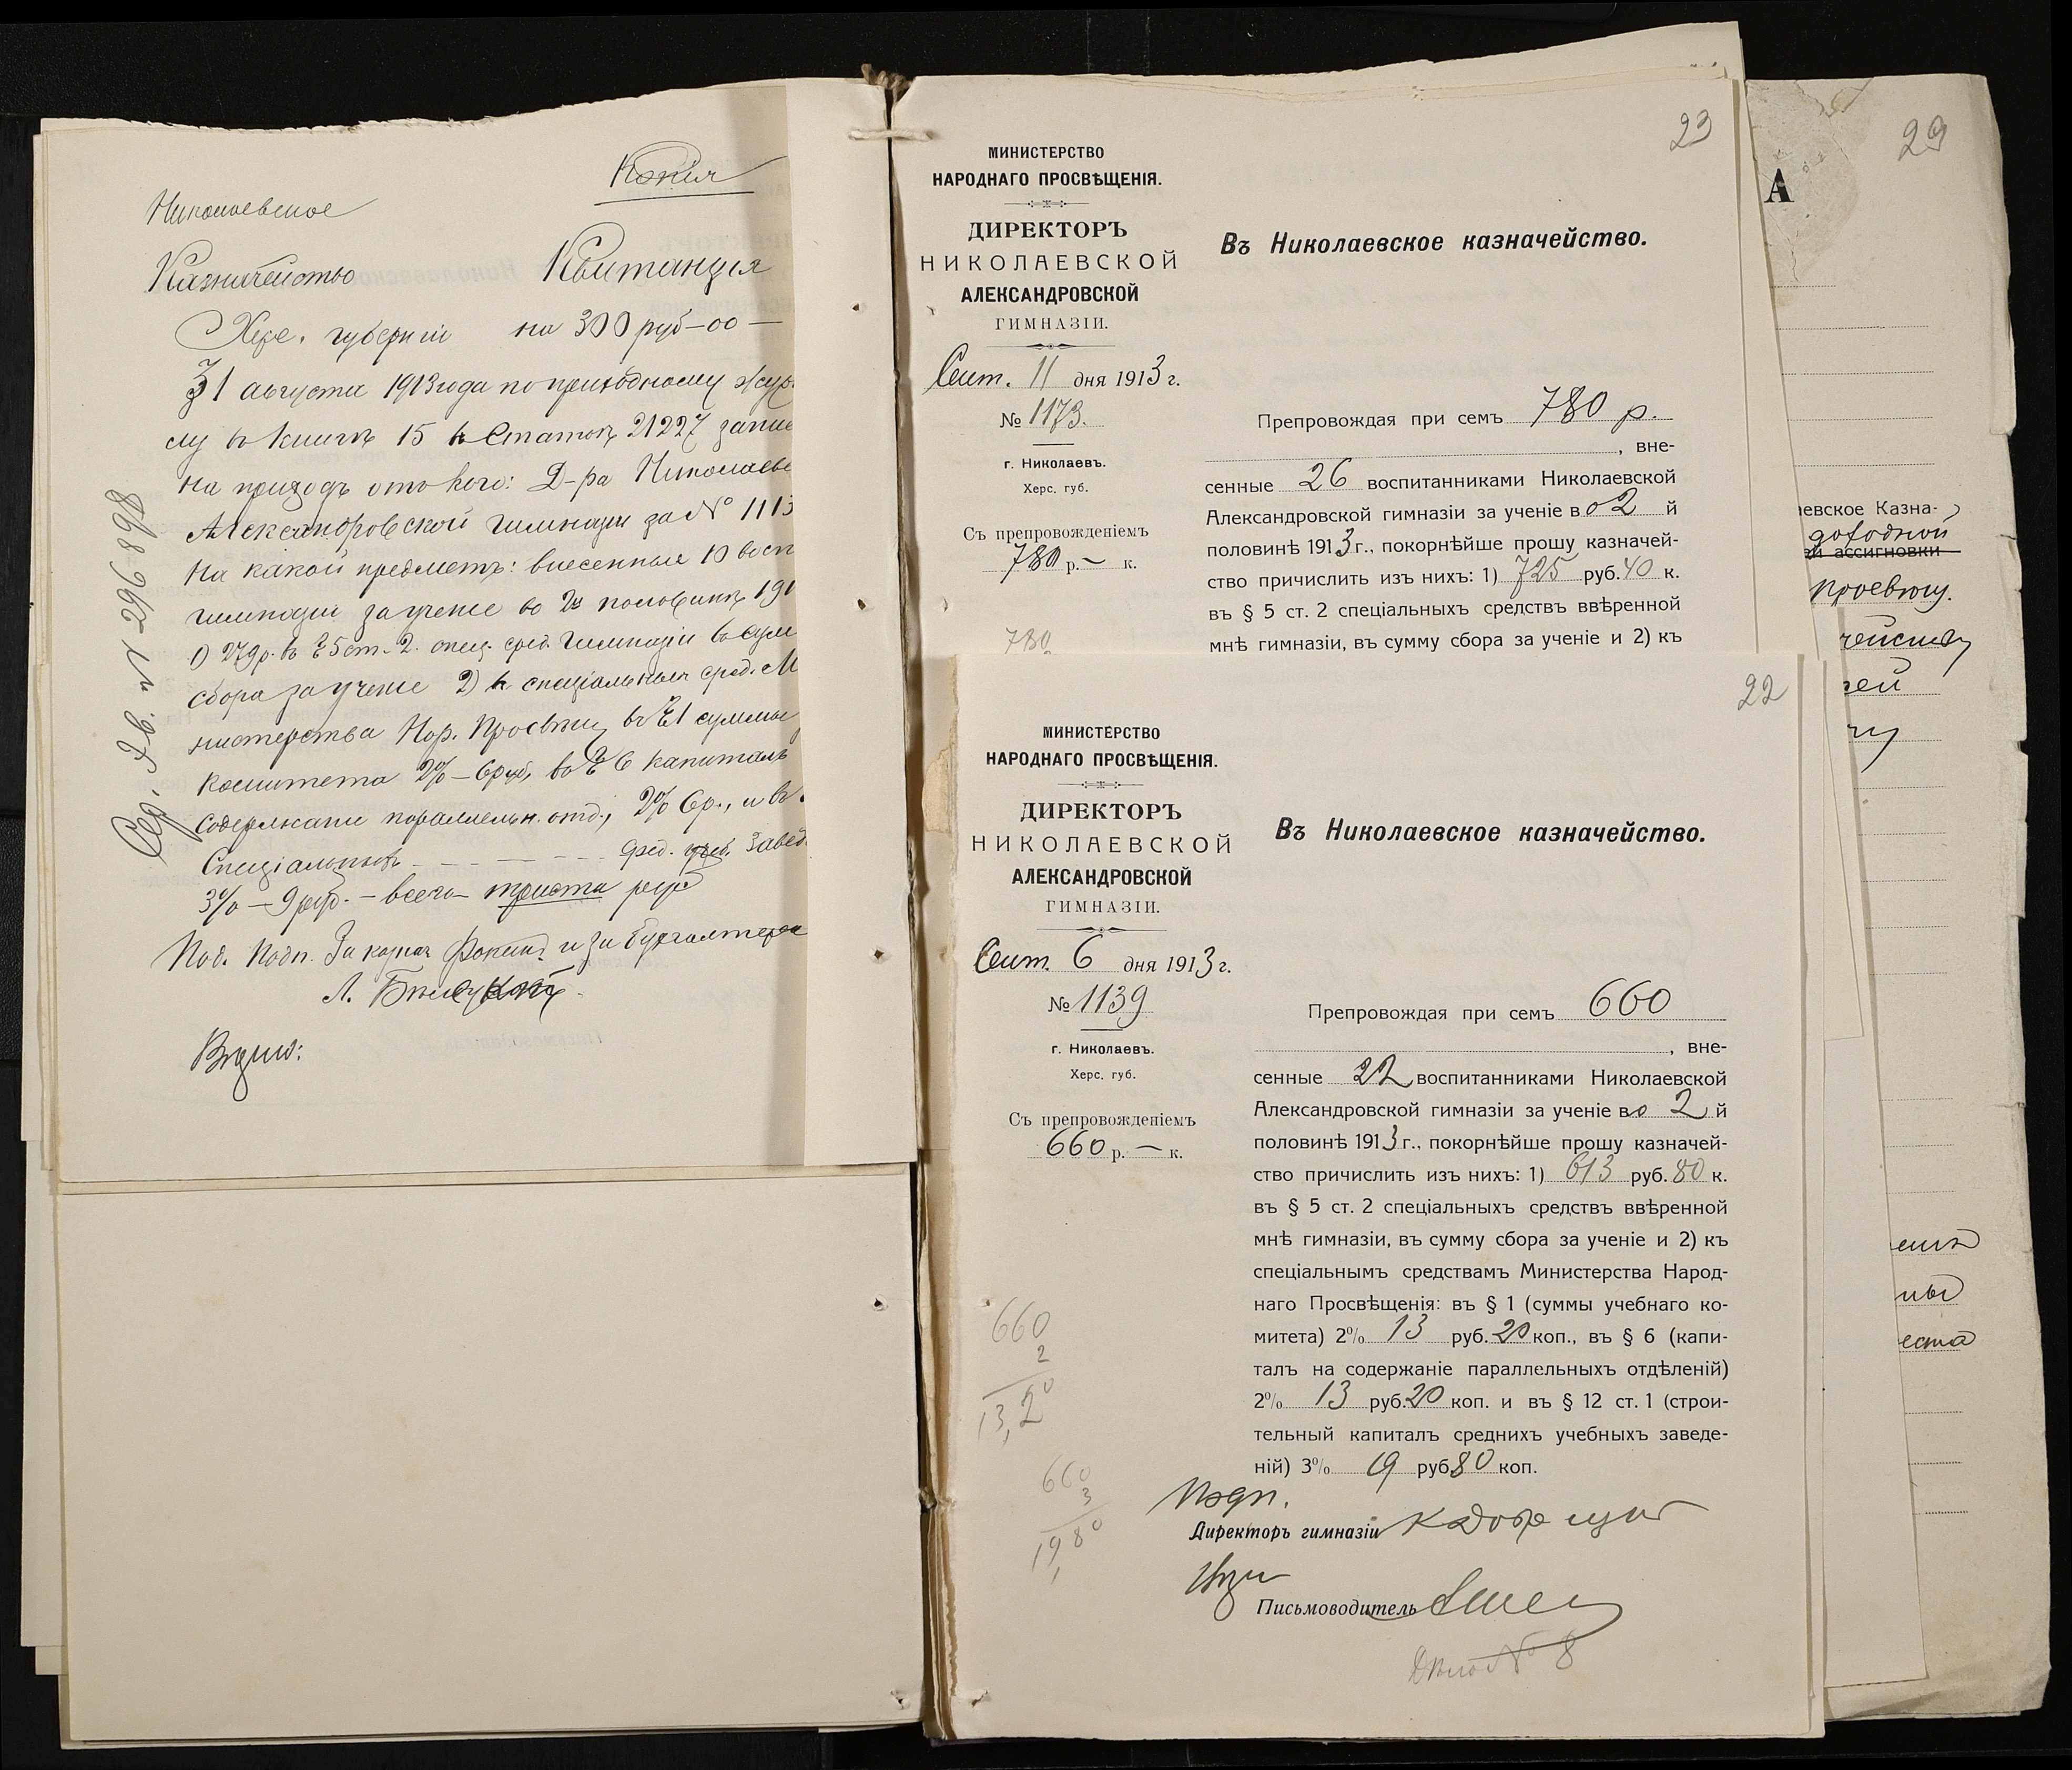 Копія
Николаевское
Казначейство
Квитанція
Херс. губерніи на 300 руб-00-
31 августа 1913 года по приходному жур
лу въ книгѣ 15 въ Статью 21227 запис
на приходъ отъ кого: Д-ра Николаевс
Александровской гимназіи за № 1113
На какой предметъ: внесенныя 10 восп
гимназіи за ученіе во 2й половинѣ 191
1) 279 р. въ § 5 ст. 2. спец. сред. Гимназіи въ сум
сбора за ученіе 2) къ спеціальнымъ сред. М
нистерства Нар. Просвѣщ въ § 1 суммы
комитета 2% - 6 руб, въ § 6 капиталъ
содержаніе параллельн. отд., 2% 6 р., и въ
Спеціальныхъ - - - - - - сред. учеб. завед.
3% - 9 руб. - всего триста руб
Под. Подп. За казнач и за бухгалтера
Л.
Вѣрно:
Сер. № 296898
23
МИНИСТЕРСТВО
НАРОДНАГО ПРОСВѢЩЕНІЯ.
ДИРЕКТОРЪ
НИКОЛАЕВСКОЙ
АЛЕКСАНДРОВСКОЙ
ГИМНАЗІИ.
Сент. 11 дня 1913 г.
№ 1173.
г. Николаевъ.
Херс. губ.
Съ препровожденіемъ
780 р. — к.
780
Въ Николаевское казначейство.
Препровождая при семъ 780 р.
, вне-
сенные 26 воспитанниками Николаевской
Александровской гимназіи за ученіе во 2 й
половинѣ 1913 г., покорнѣйше прошу казначей-
ство причислить изъ нихъ: 1) 725 руб. 40 к.
въ § 5 ст. 2 спеціальныхъ средствъ ввѣренной
мнѣ гимназіи, въ сумму сбора за ученіе и 2) къ
22
МИНИСТЕРСТВО
НАРОДНАГО ПРОСВѢЩЕНІЯ.
ДИРЕКТОРЪ
НИКОЛАЕВСКОЙ
АЛЕКСАНДРОВСКОЙ
ГИМНАЗІИ.
Сент. 6 дня 1913 г.
№ 1139
г. Николаевъ.
Херс. губ.
Съ препровожденіемъ
660 р. — к.
660
2
13,20
660
3
19,80
Въ Николаевское казначейство.
Препровождая при семъ 660
, вне-
сенные 22 воспитанниками Николаевской
Александровской гимназіи за ученіе во 2 й
половинѣ 1913 г., покорнѣйше прошу казначей-
ство причислить изъ нихъ: 1) 613 руб. 80 к.
въ § 5 ст. 2 спеціальныхъ средствъ ввѣренной
мнѣ гимназіи, въ сумму сбора за ученіе и 2) къ
спеціальнымъ средствамъ Министерства Народ-
наго Просвѣщенія: въ § 1 (суммы учебнаго ко-
митета) 2% 13 руб. 20 коп., въ § 6 (капи-
талъ на содержаніе параллельныхъ отдѣленій)
2% 13 руб. 20 коп. и въ § 12 ст. 1 (строи-
тельный капиталъ среднихъ учебныхъ заведе-
ній) 3% 19 руб 80 коп.
Подп.
Директоръ гимназіи
Письмоводитель
Дѣло № 8
29
А
евское Казна-
доходной
ассигновки